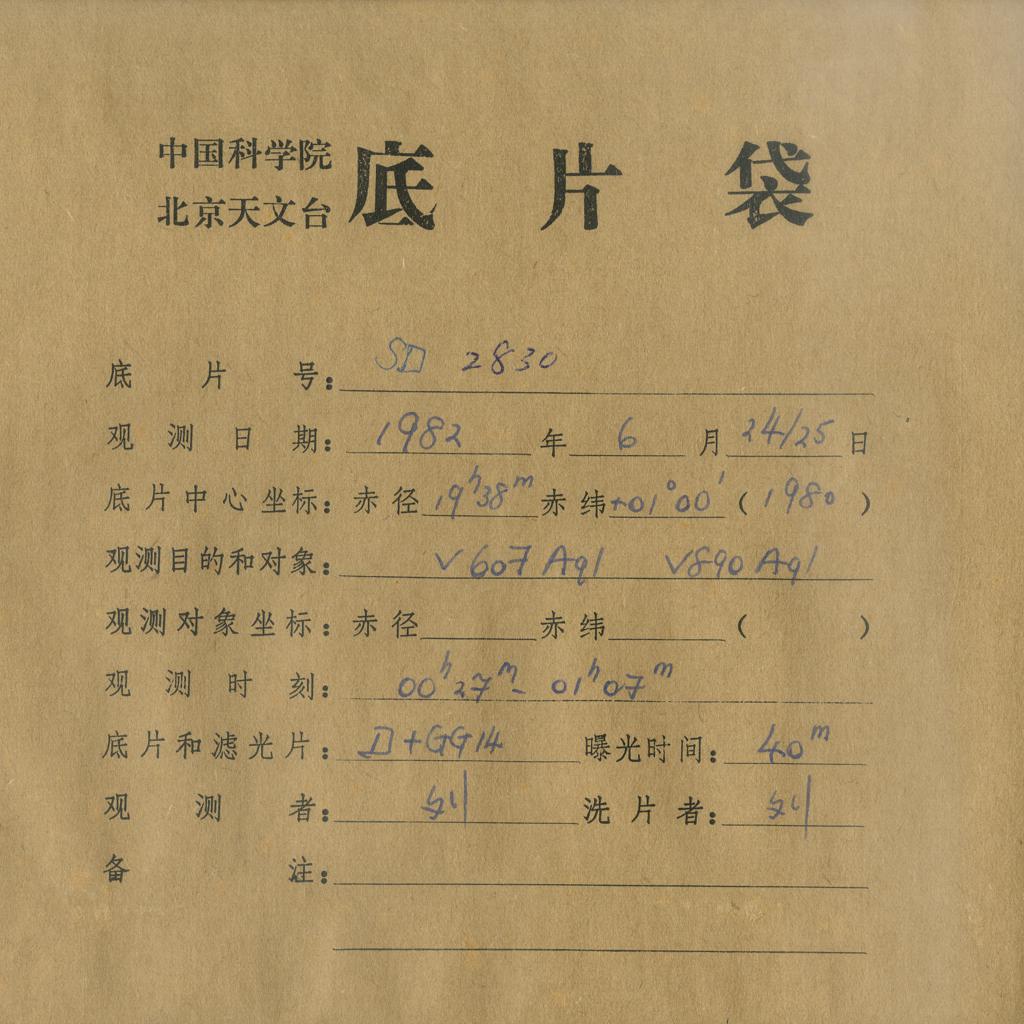 中国科学院
北京天文台
底片袋
底片号: SD 2830
观测日期: 1982 年 6 月 24/25 日
底片中心坐标: 赤径 19ʰ38ᵐ 赤纬 +01°00′ (1980)
观测目的和对象: V607 Aql V890 Aql
观测对象坐标: 赤径 赤纬 ( )
观测时刻: 00ʰ27ᵐ- 01ʰ07ᵐ
底片和滤光片: D+GG14 曝光时间: 40ᵐ
观测者: 刘 洗片者: 刘
备注: